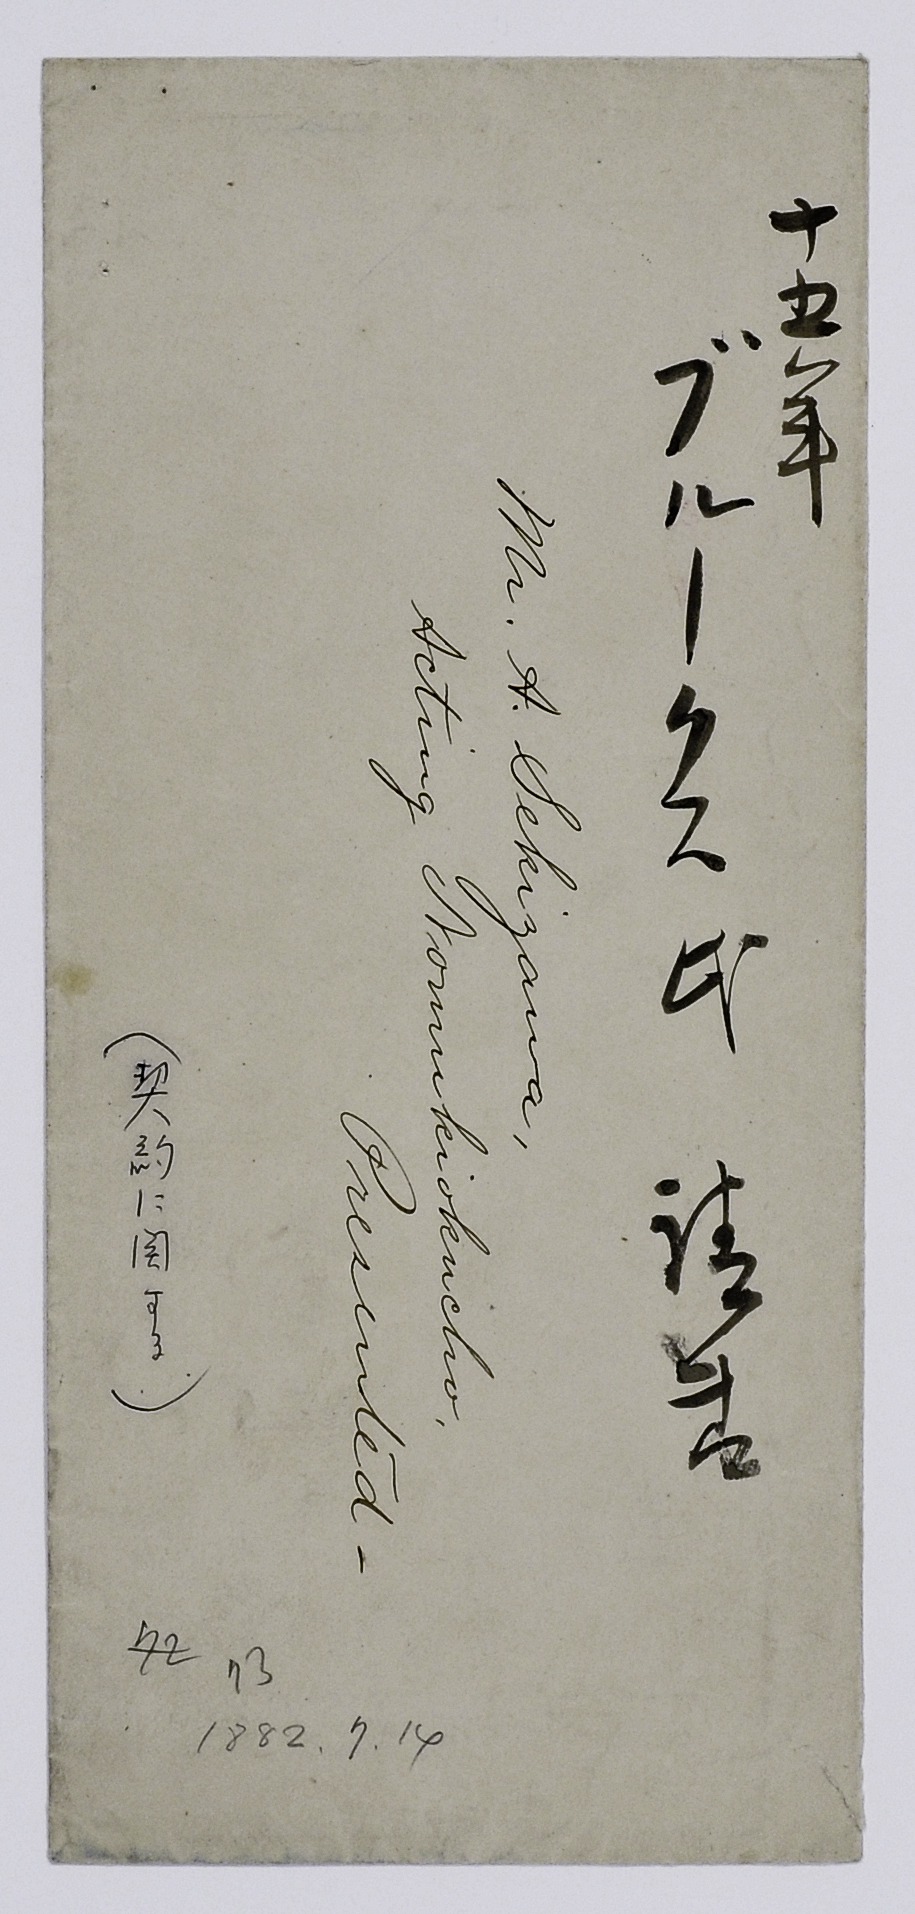 十五年
ブルークス氏 請書
Mr. A. Sekizawa,
Acting Nomukiokucho,
Presented -
(契約に関する)
72
73
1882.7.14